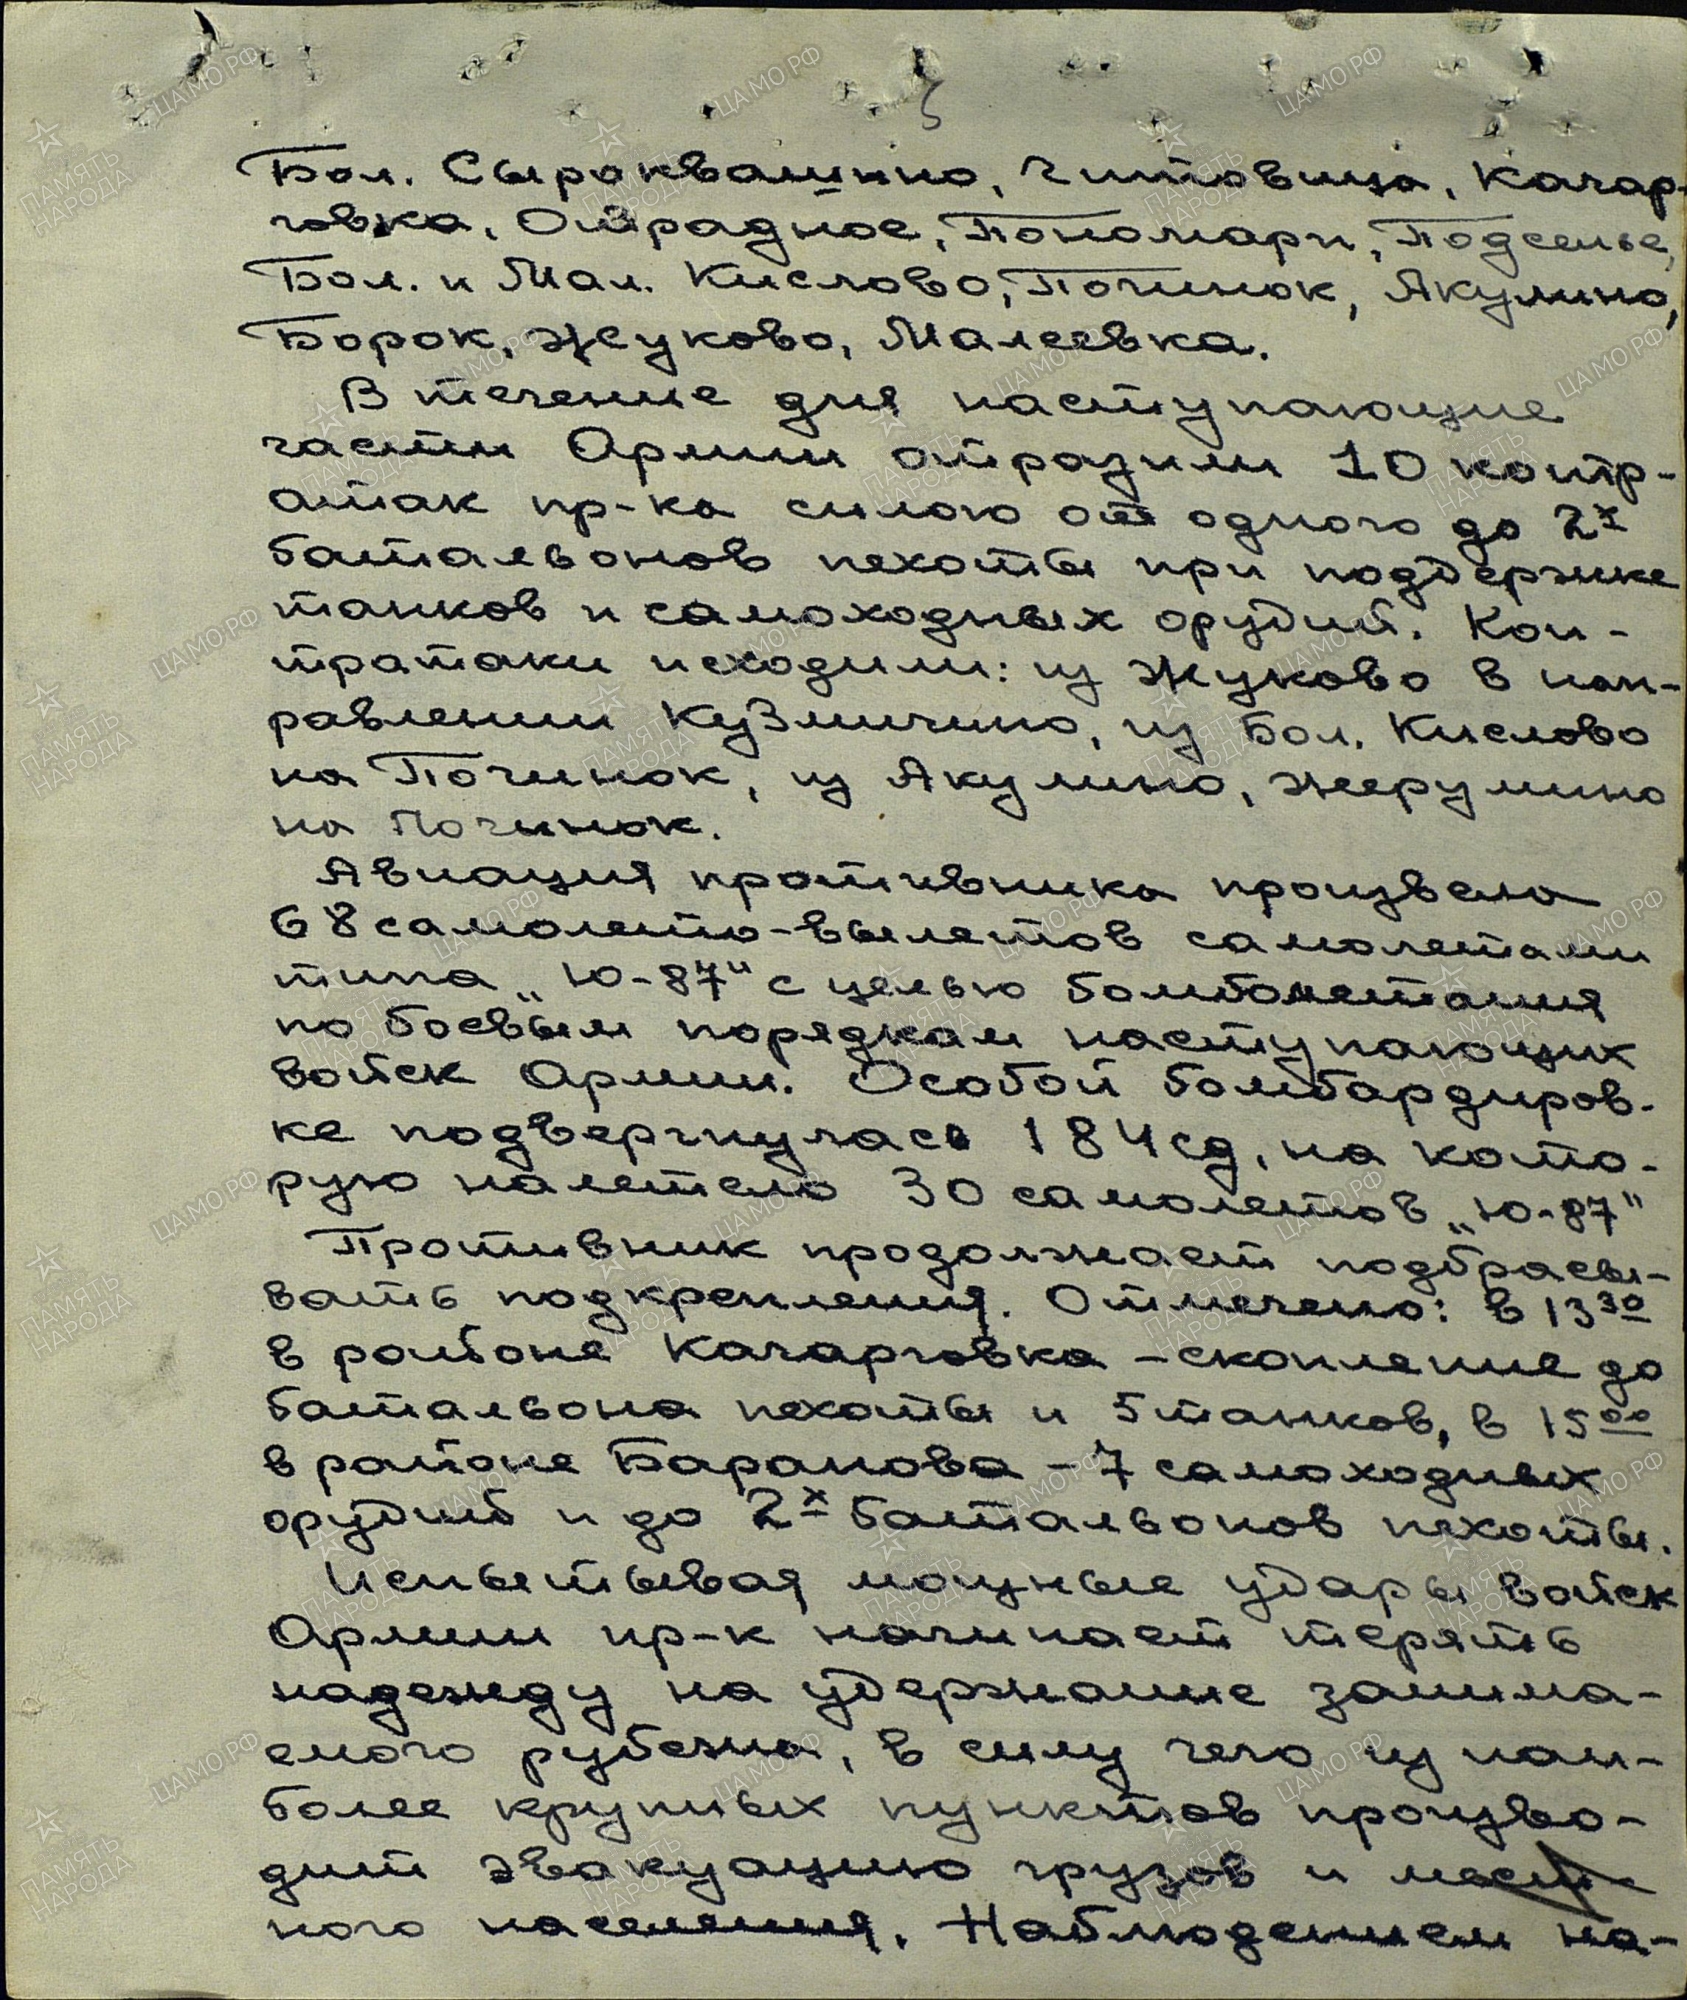 5
Бол. Сыроквашино, Читовица, Качар-
говка, Отрадное, Пономари, Подселье,
Бол. и Мал. Кислово, Починок, Якулино,
Борок, Жуково, Малеевка.
В течение дня наступающие
части Армии отразили 10 контр-
атак пр-ка силою от одного до 2х
батальонов пехоты при поддержке
танков и самоходных орудий. Кон-
тратаки исходили: из Жуково в нап-
равлении Кузмичино, из Бол. Кислово
на Починок, из Якулино, Жерулино
на Починок.
Авиация противника произвела
68 самолето-вылетов самолетами
типа „Ю-87" с целью бомбометания
по боевым порядкам наступающих
войск Армии. Особой бомбардиров-
ке подверглулась 184 сд, на кото-
рую налетело 30 самолетов „Ю-87"
Противник продолжает подбрасы-
вать подкрепления. Отмечено: в 13 30
в районе Качарговка - скопление до
батальона пехоты и 5 танков, в 15 00
в районе Баранова - 7 самоходных
орудий и до 2х батальонов пехоты.
Испытывая мощные удары войск
Армии пр-к начинает терять
надежду на удержание занима-
емого рубежа, в силу чего из наи-
более крупных пунктов произво-
дит эвакуацию грузов и мест-
ного населения. Наблюдением на-
ЦАМО РФ
ПАМЯТЬ
НАРОДА